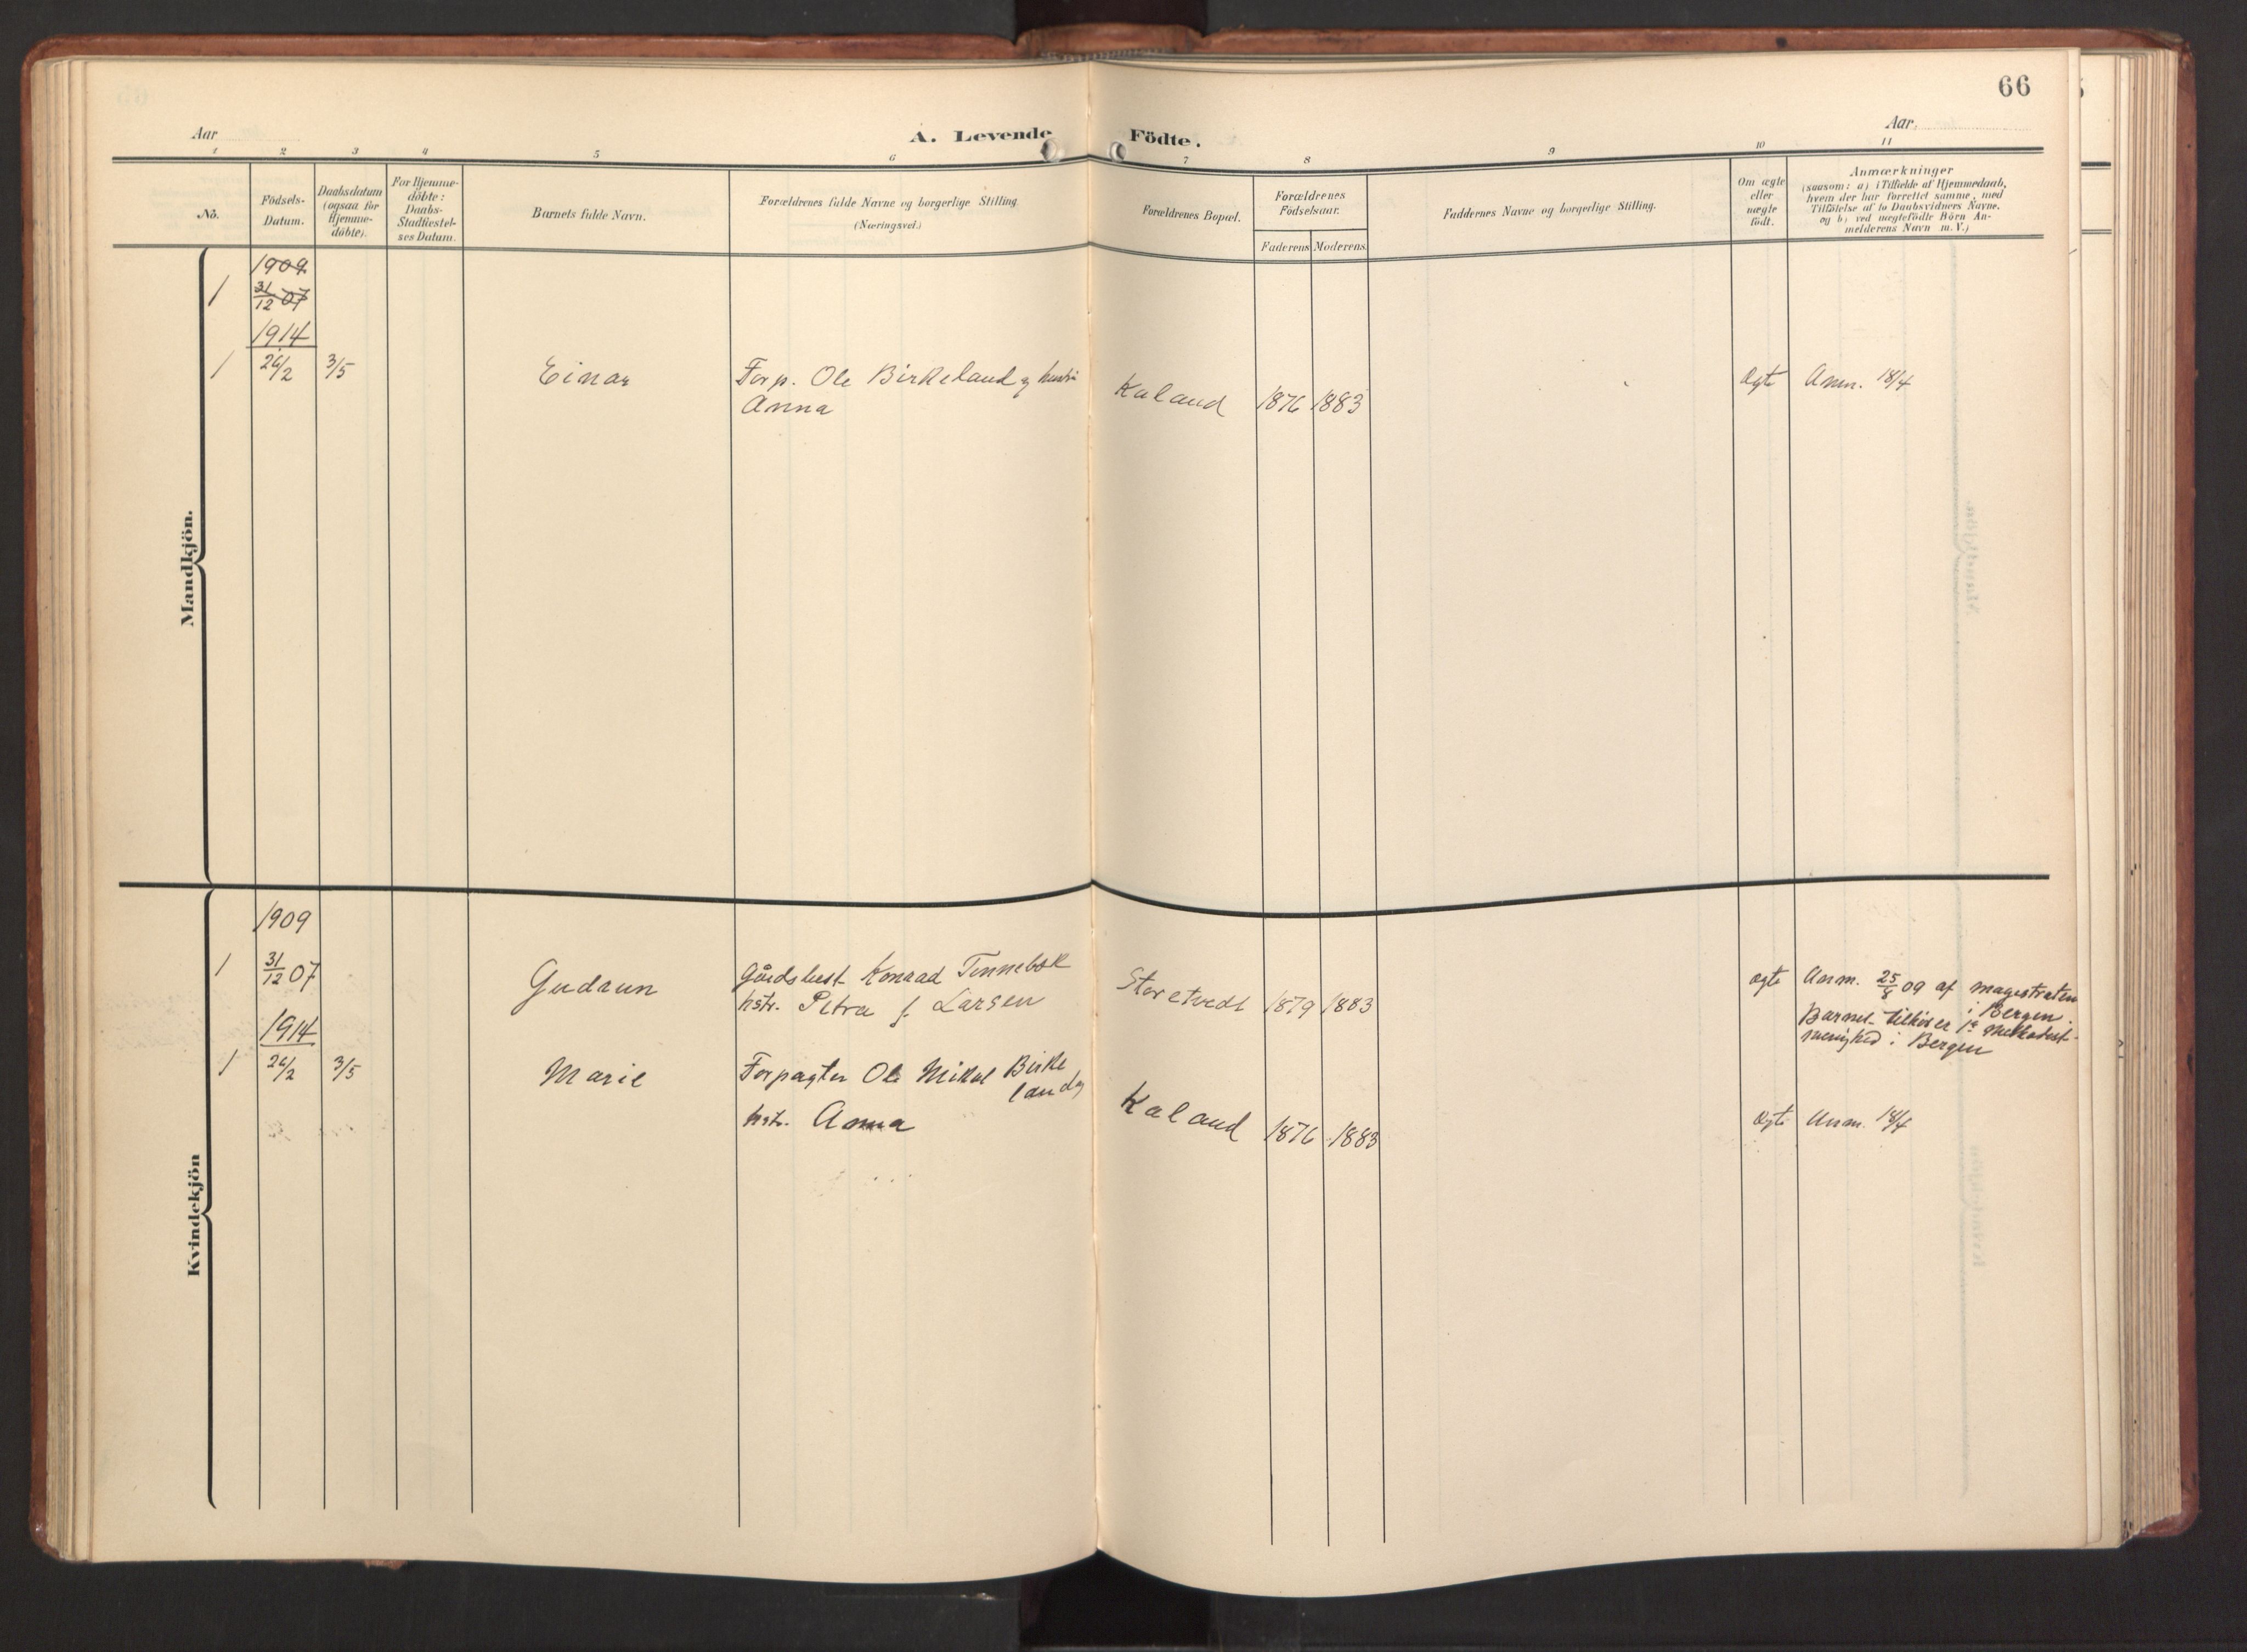 66
Aar
A. Levende Födte.
Aar.
1 2 3 4 5 6 7 8 9 10 11
No.
Födsels-
Datum.
Daabsdatum
(ogsaa for
Hjemme-
döbte).
For Hjemme-
döbte:
Daabs-
Stadfæstel-
ses Datum.
Barnets fulde Navn.
Forældrenes fulde Navne og borgerlige Stilling.
(Næringsvei.)
Forældrenes Bopæl.
Forældrenes
Födselsaar.
Faderens Moderens
Faddernes Navne og borgerlige Stilling.
Om ægte
eller
uægte
født.
Anmærkninger
(saasom: a) i Tilfælde af Hjemmedaab,
hvem der har forrettet samme, med
Tilföielse af to Daabsvidners Navne,
og b) ved uægtefödte Börn An-
melderens Navn m. V.)
Mandkjön.
1909
1 31/12 07
1914
1 26/2 3/5 Einar Forp. Ole Birkeland og hustru Kaland 1876 1883 Ægte Anm. 18/4
Anna
Kvindekjön
1909
1 31/12 07 Gudrun Gårdsbest. Konrad Tennebæk Storetvedt 1879 1883 ægte Anm. 25/8 09 af magistraten
hstr. Petra f. Larsen i Bergen.
Barnet tilhører 1ste Methodist-
menighed i Bergen
1914
1 26/2 3/5 Marie Forpagter Ole Mikal Birke
land og
hstr. Anna Kaland 1876 1883 Ægte Anm. 18/4